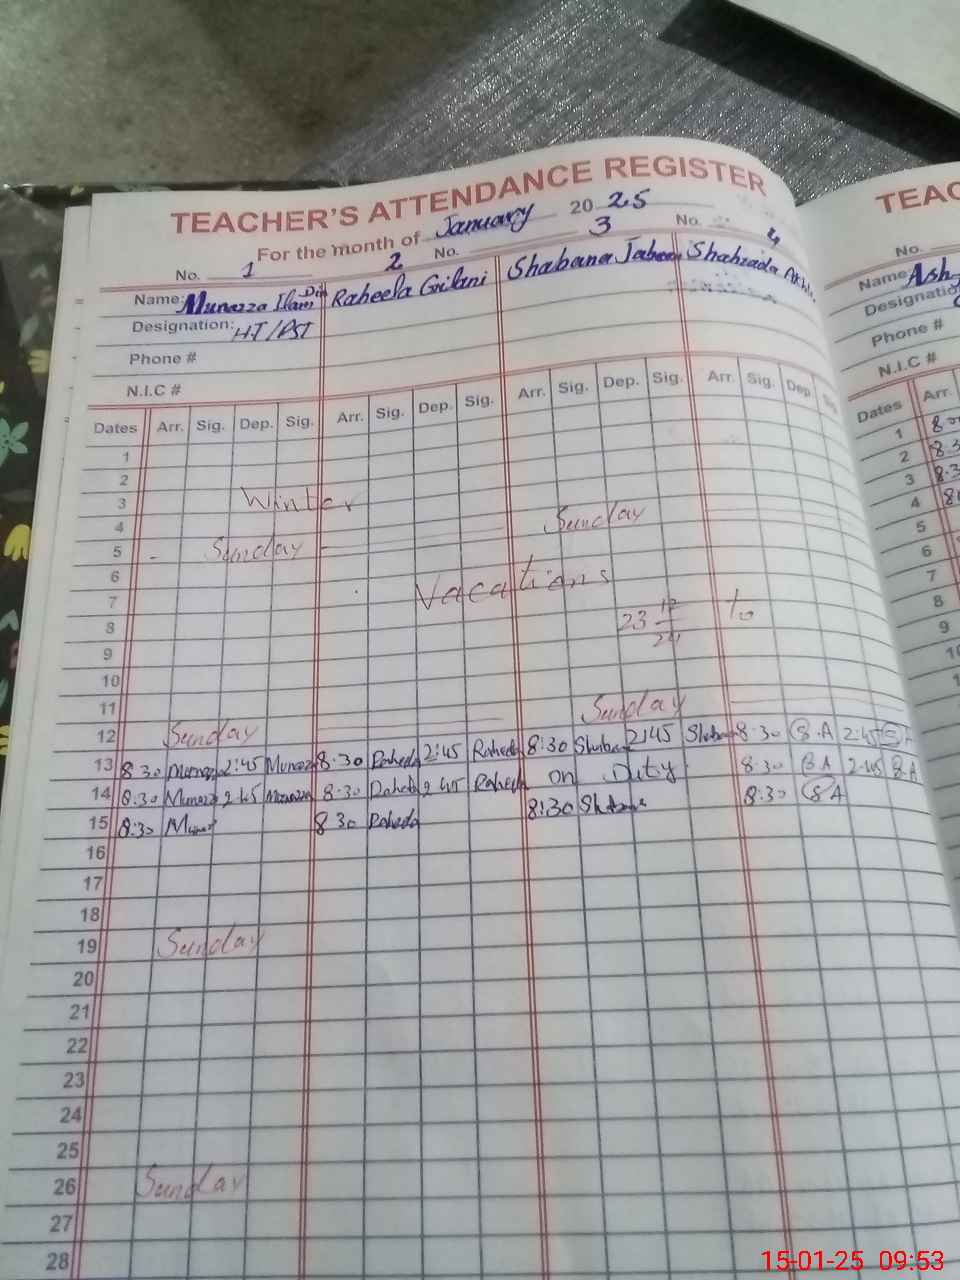 TEACHER'S ATTENDANCE REGISTER
For the month of January 20 25
No. 1 2 No. 3 No. 4
Name: Munazza Ilam Din Raheela Gilani Shabana Jabeen Shahzada
Designation: HT/PST
Phone #
N.I.C #
Dates Arr. Sig. Dep. Sig. Arr. Sig. Dep. Sig. Arr. Sig. Dep. Sig. Arr. Sig. Dep. Sig
1
2
3 Winter
4 Sunday
5 Sunday
6 Vacations
7
8 23 12/24 to
9
10
11 Sunday
12 Sunday
13 8:30 Munazza 2:45 Munazza 8:30 Raheela 2:45 Raheela 8:30 Shabana 2:45 Shabana 8:30 S.A 2:45 S.A
14 8:30 Munazza 2:45 Munazza 8:30 Raheela 2:45 Raheela on Duty 8:30 S.A 2:45 S.A
15 8:30 Munaz 8 30 Raheela 8:30 Shabana 8:30 S.A
16
17
18
19 Sunday
20
21
22
23
24
25
26 Sunday
27
28
TEAC
No.
Name: Ash
Designatio
Phone #
N.I.C #
Dates Arr.
1
2
3
4
5
6
7
8
9
10
15-01-25 09:53